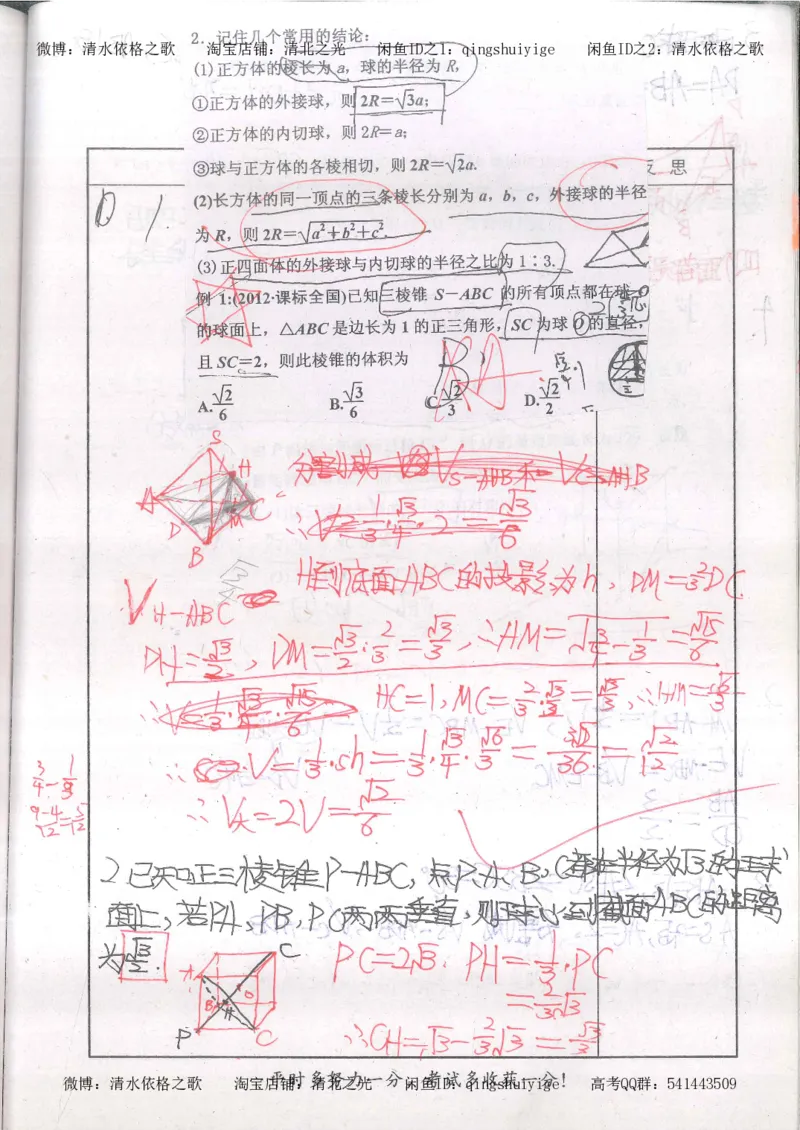 2. 记住几个常用的结论:
微博: 清水依格之歌 淘宝店铺: 清北之光 闲鱼ID之1: qingshuiyige 闲鱼ID之2: 清水依格之歌
(1)正方体的棱长为 a, 球的半径为 R,
①正方体的外接球, 则 2R=√3a;
②正方体的内切球, 则 2R=a;
③球与正方体的各棱相切, 则 2R=√2a.
反 思
(2)长方体的同一顶点的三条棱长分别为 a, b, c, 外接球的半径
为 R, 则 2R=√a²+b²+c².
(3)正四面体的外接球与内切球的半径之比为 1∶3.
例 1:(2012·课标全国)已知三棱锥 S-ABC 的所有顶点都在球 O
的球面上, △ABC 是边长为 1 的正三角形, SC 为球 O 的直径,
且 SC=2, 则此棱锥的体积为 ( )
A. √2/6 B. √3/6 C. √2/3 D. √2/2
S
H
A
D M C
B
V S-AHB 和 V C-AHB
∴V=2·1/3·√3/4·2=√3/6
H到底面ABC的投影为h, DM=2/3DC
V H-ABC
DH=√3/2, DM=√3/2·2/3=√3/3, ∴HM=√3/4-1/3=√15/6
HC=1, MC=2/3·√3/2=√3/3, ∴HM=√6/3
∴V=1/3·sh=1/3·√3/4·√6/3=3√2/36=√2/12
3/4-1/3
9-4/12=5/12
∴V大=2V=√2/6
2.已知正三棱锥P-ABC, 点P,A,B,C都在半径为√3的球
面上, 若PA, PB, PC两两垂直, 则球心到截面ABC的距离
为√3/2.
PC=2√3. PH=1/3·PC
=2/3√3
∴OH=√3-2/3√3=√3/3
平时多努力一分, 考试多收获一分!
微博: 清水依格之歌 淘宝店铺: 清北之光 闲鱼ID: qingshuiyige 高考QQ群: 541443509